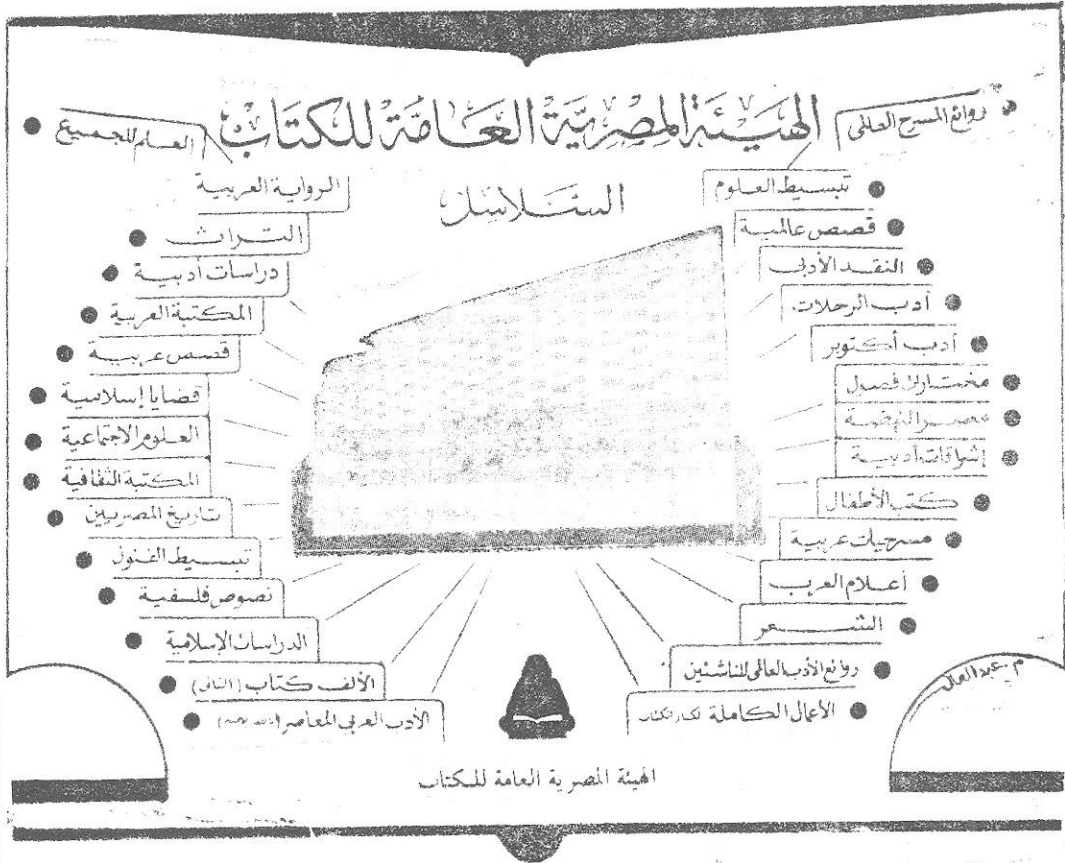 الهيئة المصرية العامة للكتاب
السلاسل
روائع المسرح العالمى
تبسيط العلوم
قصص عالمية
النقد الأدبى
أدب الرحلات
أدب أكتوبر
مختارات فصول
عصر النهضة
إشراقات أدبية
كتب الأطفال
مسرحيات عربية
أعلام العرب
الشعر
روائع الأدب العالمى للناشئين
الأعمال الكاملة لكبار الكتاب
العلم للجميع
الرواية العربية
التراث
دراسات أدبية
المكتبة العربية
قصص عربية
قضايا إسلامية
العلوم الاجتماعية
المكتبة الثقافية
تاريخ المصريين
تبسيط الفنون
نصوص فلسفية
الدراسات الإسلامية
الألف كتاب (الثانى)
الأدب العربى المعاصر
م. عبدالعال
الهيئة المصرية العامة للكتاب